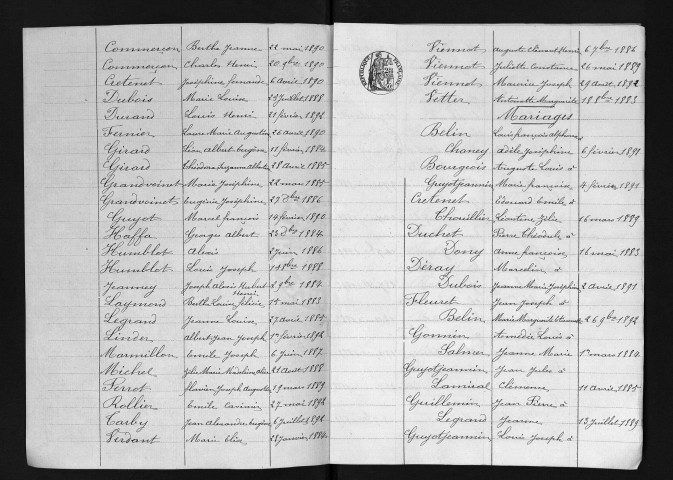 Commerçon Berthe Jeanne 22 mai 1890
Commerçon Charles Henri 20 9bre 1890
Cretenet Joséphine fernande 6 avril 1890
Dubois Marie Louise 23 juillet 1888
Durand Louis Henri 21 février 1892
Fernier Laure Marie Augustine 26 avril 1890
Girard Léon Albert Eugène 11 février 1884
Girard Théodore 28 avril 1885
Grandvoinet Marie Joséphine 22 mars 1885
Grandvoinet Eugénie Joséphine 27 Xbre 1886
Guyot Marcel françois 14 février 1890
Haffa Georges Albert 22 Xbre 1884
Humblot Alexis 2 juin 1886
Humblot Louis Joseph 1888
Jeanney Joseph Alexis Hubert Henri 2 9bre 1884
Laymond Berthe Louise félicie 15 mai 1883
Legrand Jeanne Louise 27 avril 1885
Linder Albert Jean Joseph 1er février 1892
Marmillon Emile Joseph 6 juin 1887
Michel Marie 21 août 1888
Perrot flavien Joseph Auguste 19 mars 1889
Rollier Emile Casimir 27 mai 1892
Tarby Jean Alexandre Eugène 6 juillet 1892
Verdant Marie Elia 28 janvier 1884
Viennot Auguste Clément Henri 6 7bre 1886
Viennot Juliette Constance 26 mai 1889
Viennot Maurice Joseph 29 août 1892
Vetter Antoinette Marguerite 18 8bre 1883
Mariages
Belin Louis françois Alphonse
Chaney Adèle Joséphine 6 février 1891
Bourgeois Auguste Louis &
Guyotjeannin Marie françoise 4 février 1891
Cretenet Edouard Emile &
Chouillier Léontine Zélie 16 mars 1889
Duchet Pierre Théodule &
Dony Anne françoise 16 mai 1883
Déray Marcelin &
Dubois Jeanne Marie Joséphine 2 avril 1891
Fleuret Jean Joseph &
Belin Marie Marguerite 26 9bre 1892
Gonnin Amédée Louis &
Salmer Jeanne Marie 1er mars 1884
Guyotjeannin Jean Jules &
Lamiral Clémence 11 avril 1885
Guillemin Jean Pierre &
Legrand Jeanne 13 juillet 1889
Guyotjeannin Louis Joseph &